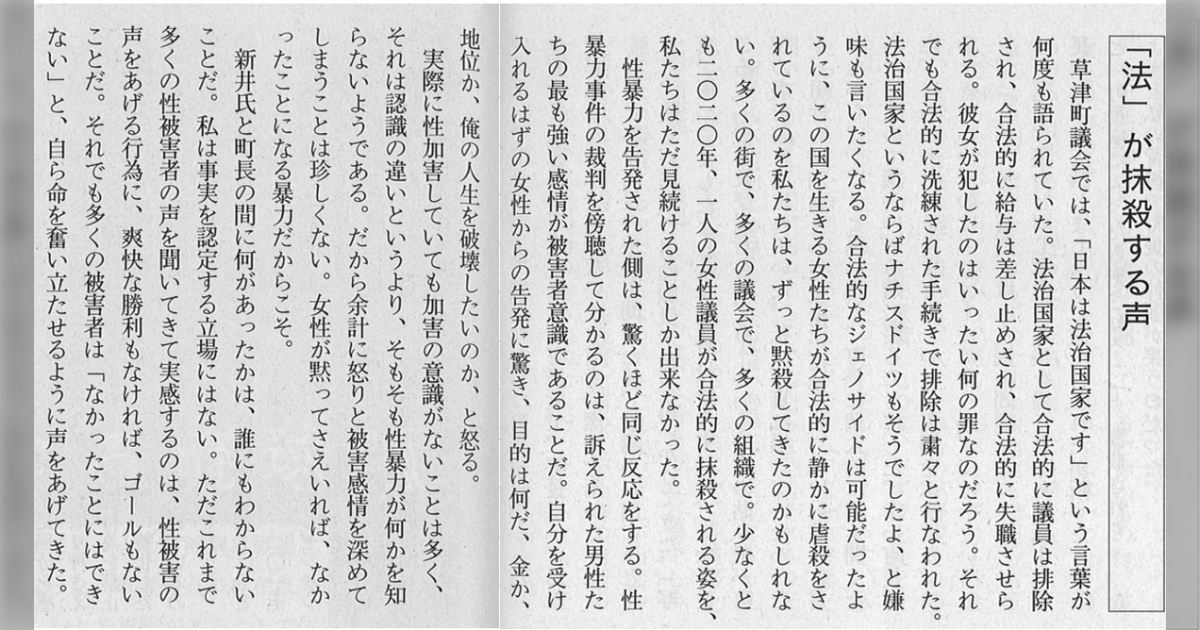 「法」が抹殺する声
草津町議会では、「日本は法治国家です」という言葉が
何度も語られていた。法治国家として合法的に議員は排除
され、合法的に給与は差し止めされ、合法的に失職させら
れる。彼女が犯したのはいったい何の罪なのだろう。それ
でも合法的に洗練された手続きで排除は粛々と行なわれた。
法治国家というならばナチスドイツもそうでしたよ、と嫌
味も言いたくなる。合法的なジェノサイドは可能だったよ
うに、この国を生きる女性たちが合法的に静かに虐殺をさ
れているのを私たちは、ずっと黙殺してきたのかもしれな
い。多くの街で、多くの議会で、多くの組織で。少なくと
も二〇二〇年、一人の女性議員が合法的に抹殺される姿を、
私たちはただ見続けることしか出来なかった。
性暴力を告発された側は、驚くほど同じ反応をする。性
暴力事件の裁判を傍聴して分かるのは、訴えられた男性た
ちの最も強い感情が被害者意識であることだ。自分を受け
入れるはずの女性からの告発に驚き、目的は何だ、金か、
地位か、俺の人生を破壊したいのか、と怒る。
実際に性加害していても加害の意識がないことは多く、
それは認識の違いというより、そもそも性暴力が何かを知
らないようである。だから余計に怒りと被害感情を深めて
しまうことは珍しくない。女性が黙ってさえいれば、なか
ったことになる暴力だからこそ。
新井氏と町長の間に何があったかは、誰にもわからない
ことだ。私は事実を認定する立場にはない。ただこれまで
多くの性被害者の声を聞いてきて実感するのは、性被害の
声をあげる行為に、爽快な勝利もなければ、ゴールもない
ことだ。それでも多くの被害者は「なかったことにはでき
ない」と、自ら命を奮い立たせるように声をあげてきた。